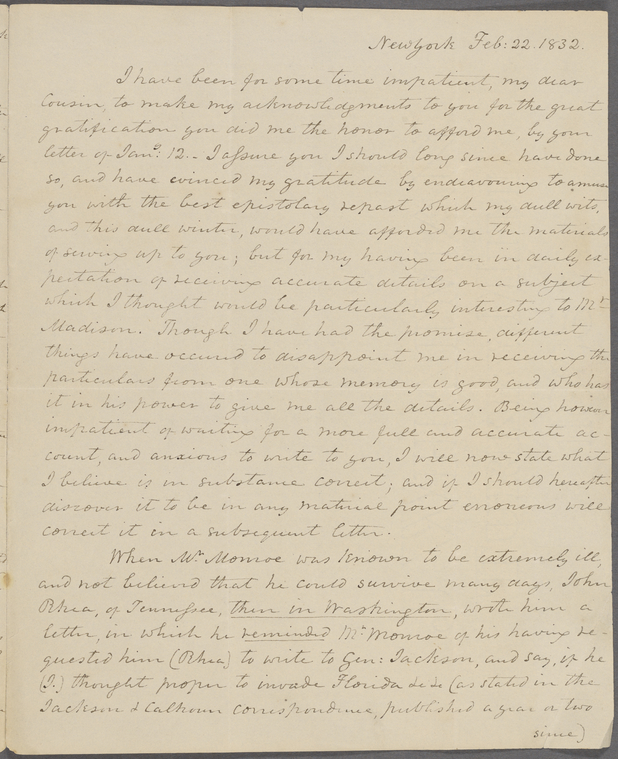 New York Feb: 22. 1832.
I have been for some time impatient, my dear
Cousin, to make my acknowledgments to you for the great
gratification you did me the honor to afford me, by your
letter of Jany: 12.- I assure you I should long since have done
so, and have evinced my gratitude by endeavouring to amuse
you with the best epistolary repast which my dull wits,
and this dull winter, would have afforded me the materials
of serving up to you; but for my having been in daily ex-
pectation of receiving accurate details on a subject
which I thought would be particularly interesting to Mr.
Madison. Though I have had the promise, different
things have occured to disappoint me in receiving the
particulars from one whose memory is good, and who has
it in his power to give me all the details. Being however
impatient of waiting for a more full and accurate ac-
count, and anxious to write to you, I will now state what
I believe is in substance correct; and if I should hereafter
discover it to be in any material point erroneous will
correct it in a subsequent letter.
When Mr. Monroe was known to be extremely ill,
and not believed that he could survive many days, John
Rhea, of Tennessee, then in Washington, wrote him a
letter, in which he reminded Mr. Monroe of his having re-
quested him (Rhea) to write to Gen: Jackson, and say, if he
(J.) thought proper to invade Florida &c &c (as stated in the
Jackson & Calhoun correspondence, published a year or two
since)